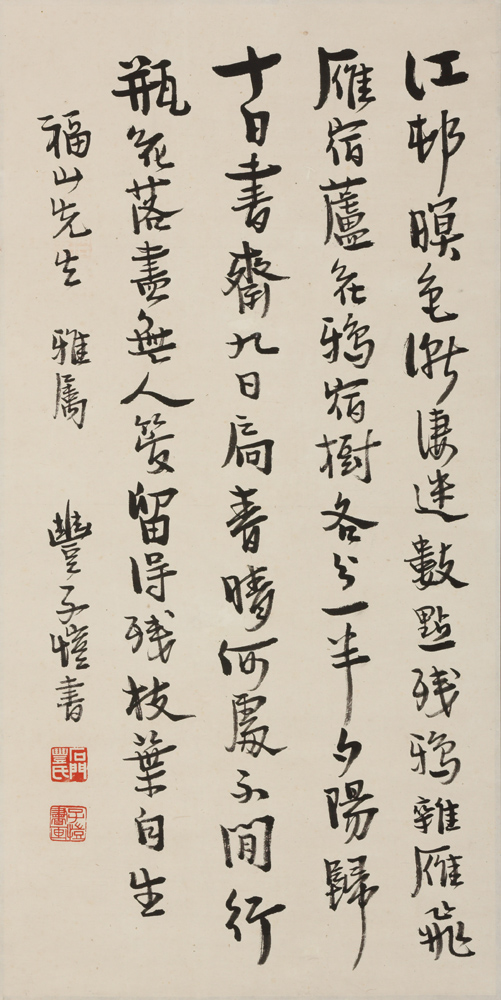 江邨暝色漸凄迷數點残鴉雜雁飛
雁宿蘆花鴉宿樹各分一半夕陽歸
十日書齋九日扃春晴何處不閒行
瓶花落盡無人管留得残枝葉自生
福山先生 雅属 豐子愷書
石門豐氏
子愷書畫